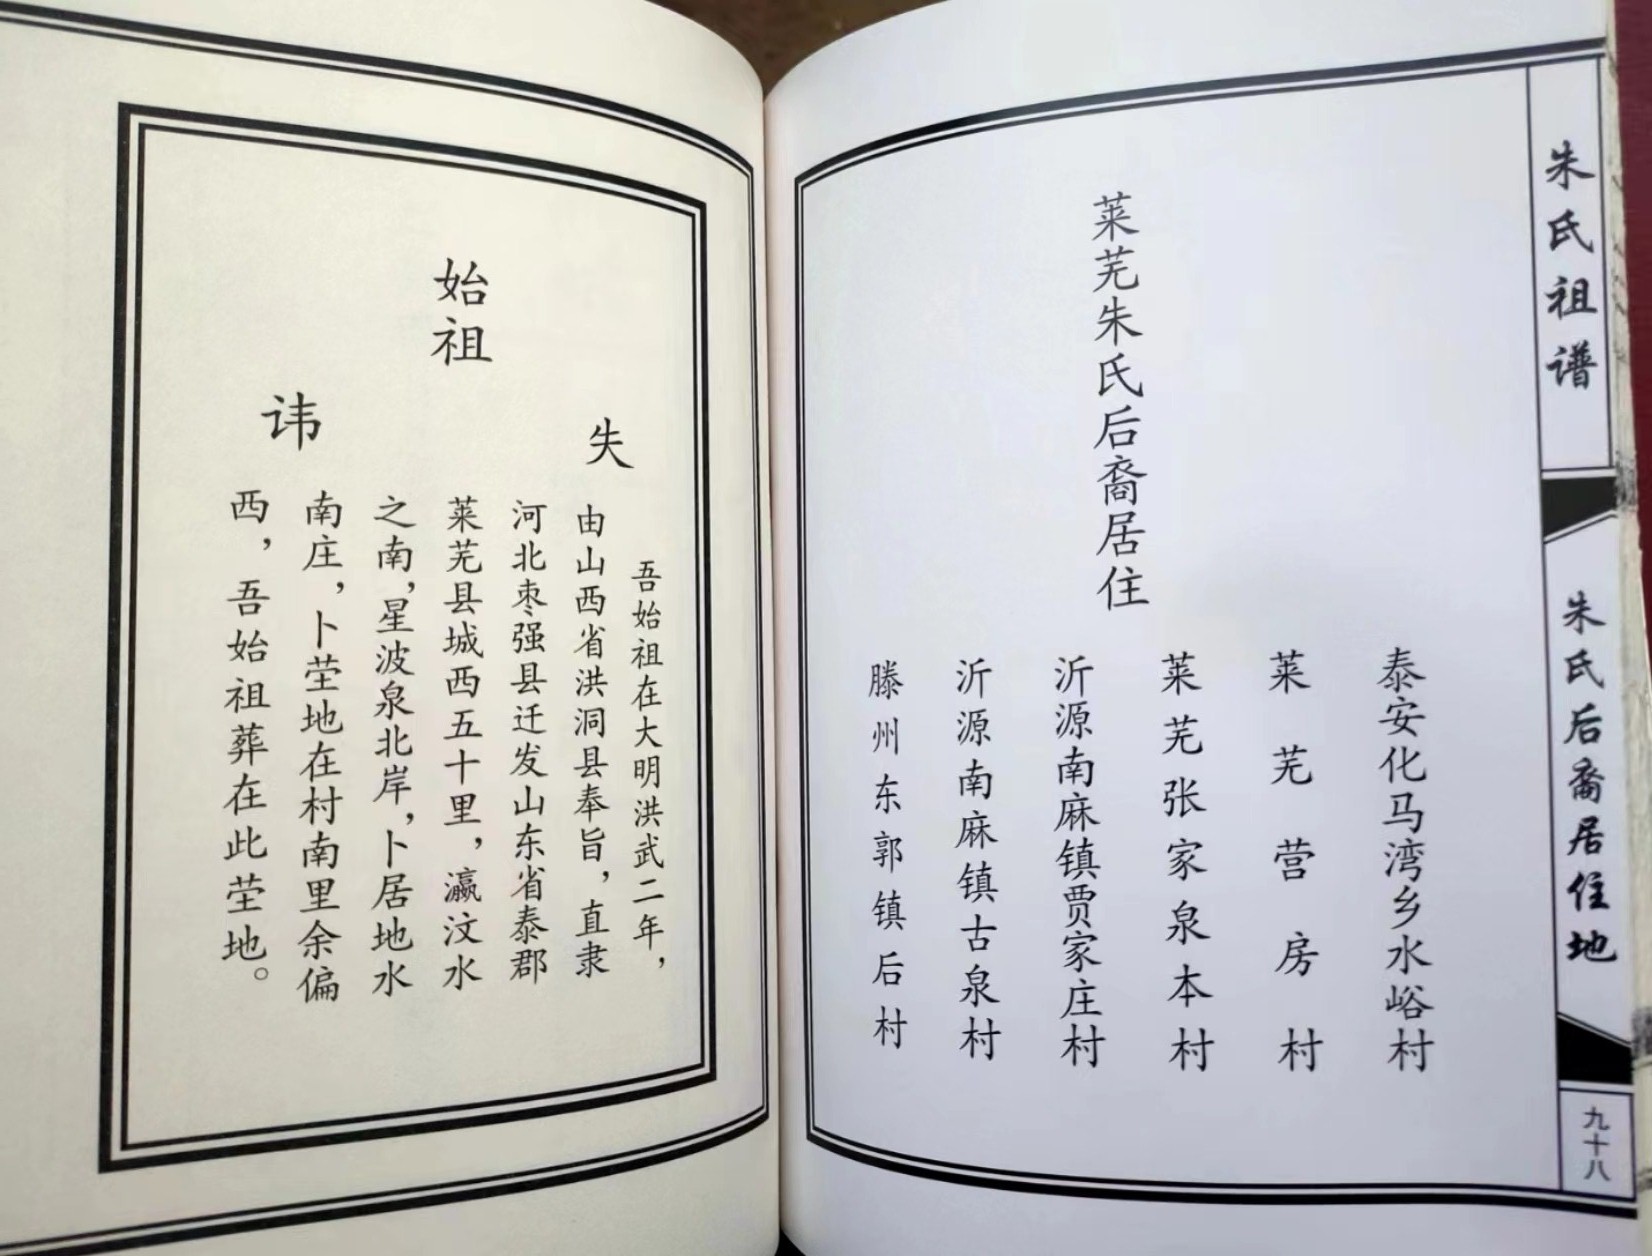 朱氏祖谱
朱氏后裔居住地
九十八
莱芜朱氏后裔居住
泰安化马湾乡水峪村
莱芜营房村
莱芜张家泉本村
沂源南麻镇贾家庄村
沂源南麻镇古泉村
滕州东郭镇后村
始祖
失
讳
吾始祖在大明洪武二年，
由山西省洪洞县奉旨，直隶
河北枣强县迁发山东省泰郡
莱芜县城西五十里，瀛汶水
之南，星波泉北岸，卜居地水
南庄，卜茔地在村南里余偏
西，吾始祖葬在此茔地。